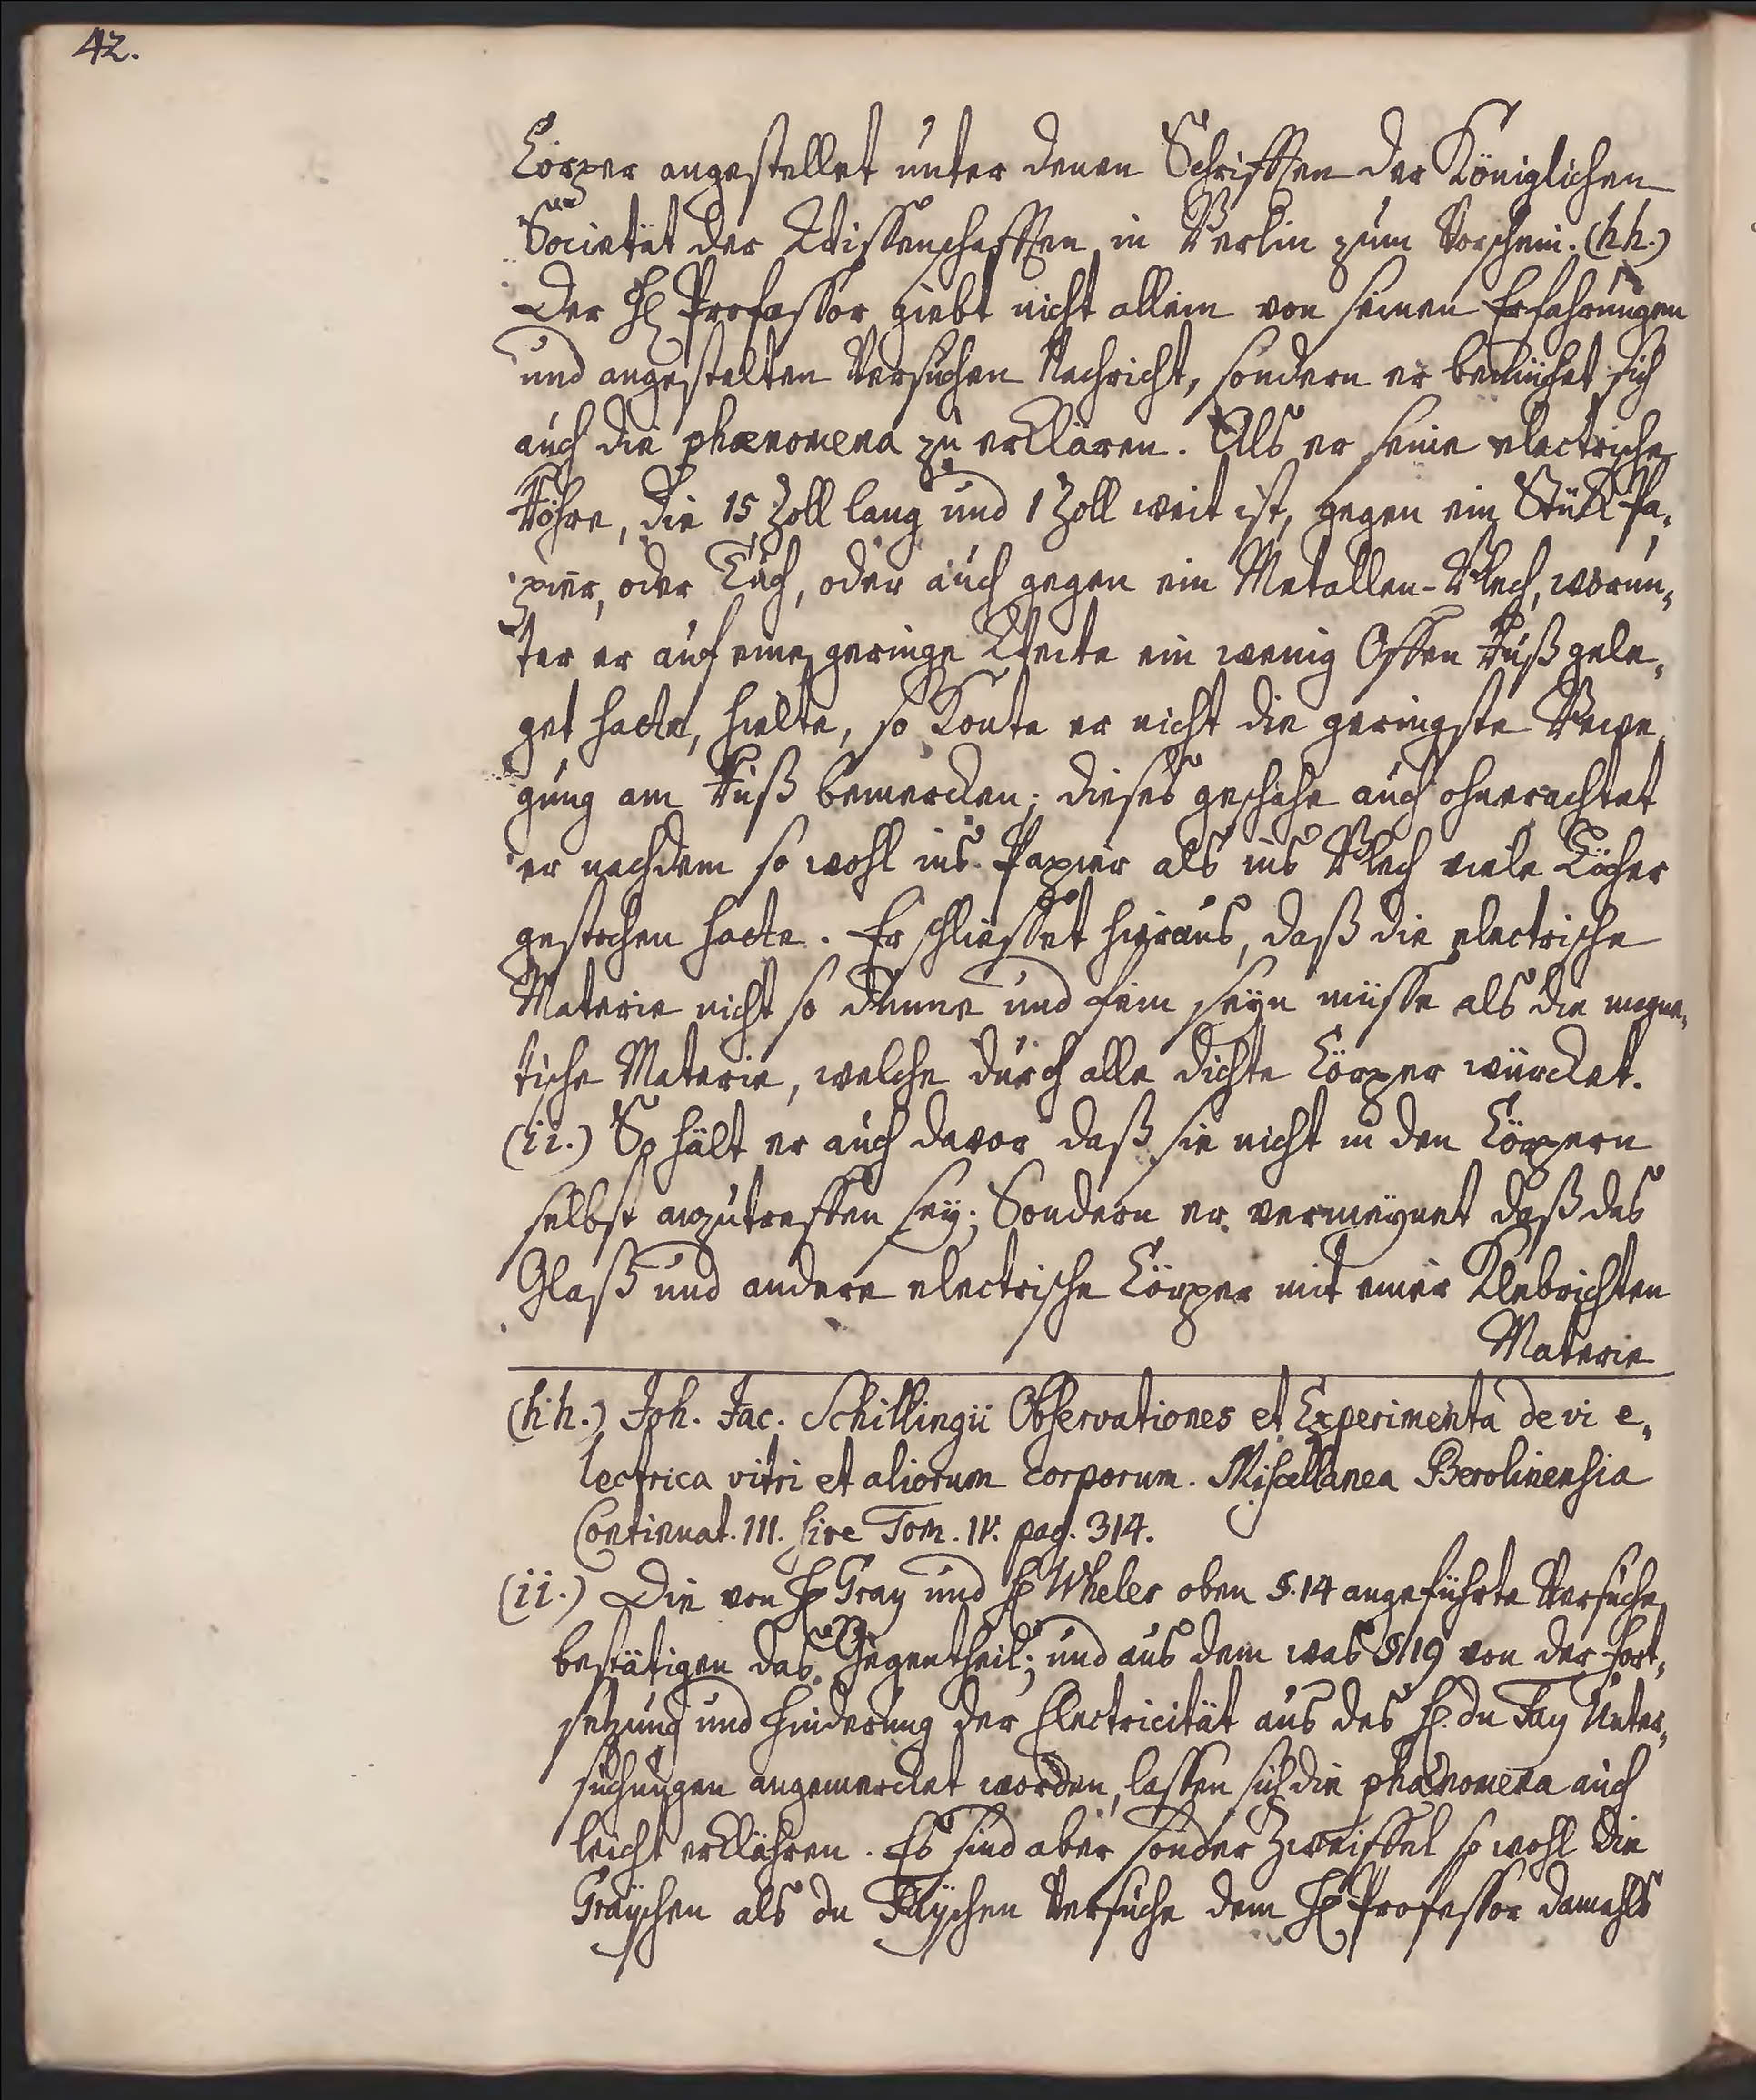 42.
Cörper angestellet unter denen Schrifften der Königlichen
Societät der Wissenschafften in Berlin zum Vorschein. (hh.)
Der H. Professor giebt nicht allein von seinen Erfahrungen
und angestelten Versuchen Nachricht, sondern er bemühet sich
auch die phænomena zu erklären. Als er seine electrische
Röhre, die 15 Zoll lang und 1 Zoll weit ist, gegen ein Stück Pa,
pier, oder Tuch, oder auch gegen ein Metallen-Blech, worun,
ter er auf eine geringe Weite ein wenig Offen Ruß gele,
get hatte, hielte, so konte er nicht die geringste Bewe,
gung am Ruß bemercken; dieses geschahe auch ohnerachtet
er nachdem so wohl ins Papier als ins Blech viele Löcher
gestochen hatte. Er schliesset hieraus, daß die electrische
Materie nicht so dünne und fein seyn müsse als die magne,
tische Materie, welche durch alle dichte Cörper würcket.
(ii.) So hält er auch davor daß sie nicht in den Cörpern
selbst anzutreffen sey; Sondern er vermeynet daß das
Glaß und andere electrische Cörper mit einer klebrichten
Materie
(hh.) Joh. Jac. Schillingii Observationes et Experimenta de vi e,
lectrica vitri et aliorum corporum. Miscellanea Berolinensia
Continuat. III. sive Tom. IV. pag. 314.
(ii.) Die von H. Gray und H. Wheler oben §.14 angeführte Versuche
bestätigen das Gegentheil; und aus dem was §.19 von der Fort,
setzung und Hinderung der Electricität aus des H. du Fay Unter,
suchungen angemercket worden, lassen sich die phænomena auch
leicht erklähren. Es sind aber sonder Zweiffel so wohl die
Grayschen als du Fayschen Versuche dem H. Professor damahls